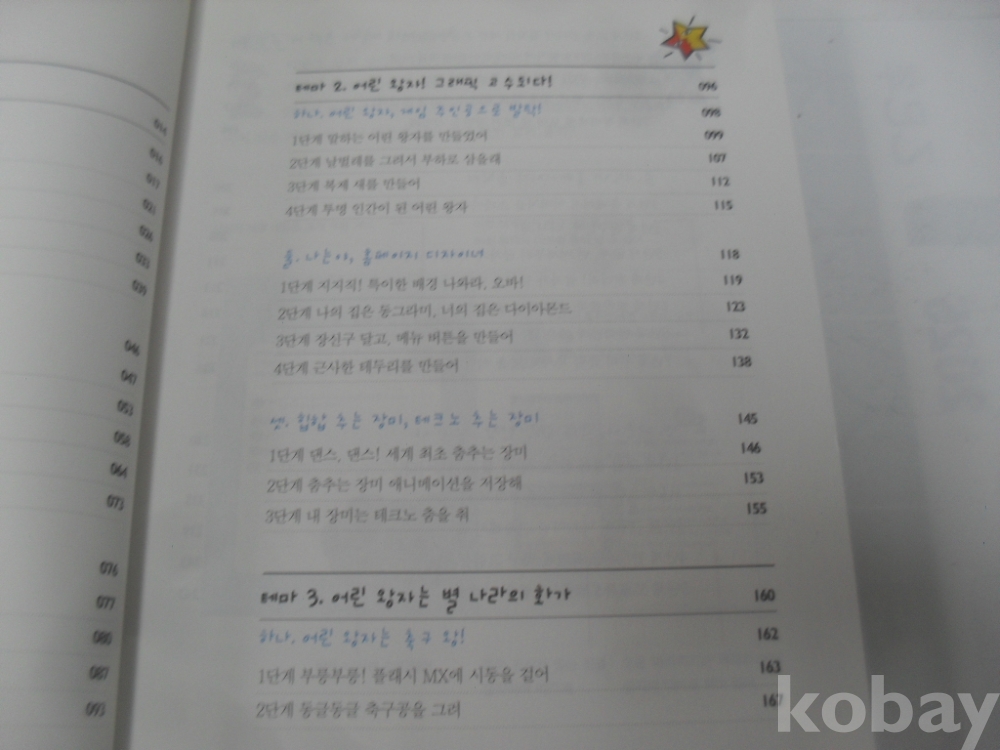 014
016
017
021
026
033
039
046
047
053
058
064
073
076
077
080
087
093
테마 2. 어린 왕자! 그래픽 고수되다! 096
하나. 어린 왕자, 게임 주인공으로 발탁! 098
1단계 말하는 어린 왕자를 만들었어 099
2단계 날벌레를 그려서 부하로 삼을래 107
3단계 복제 새를 만들어 112
4단계 투명 인간이 된 어린 왕자 115
둘. 나는야, 홈페이지 디자이너 118
1단계 지지직! 특이한 배경 나와라, 오바! 119
2단계 나의 집은 동그라미, 너의 집은 다이아몬드 123
3단계 장신구 달고, 메뉴 버튼을 만들어 132
4단계 근사한 테두리를 만들어 138
셋. 힙합 추는 장미, 테크노 추는 장미 145
1단계 댄스, 댄스! 세계 최초 춤추는 장미 146
2단계 춤추는 장미 애니메이션을 저장해 153
3단계 내 장미는 테크노 춤을 춰 155
테마 3. 어린 왕자는 별 나라의 화가 160
하나. 어린 왕자는 축구 왕! 162
1단계 부릉부릉! 플래시 MX에 시동을 걸어 163
2단계 동글동글 축구공을 그려 167
kobay